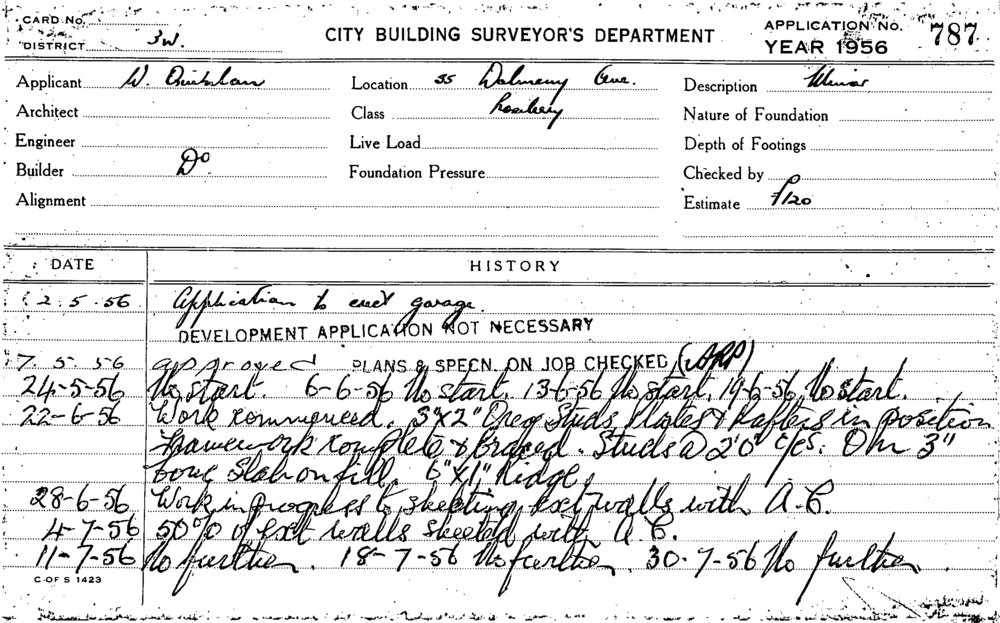 CARD No.
DISTRICT 3W.
CITY BUILDING SURVEYOR'S DEPARTMENT
APPLICATION No. 787
YEAR 1956
Applicant W.
Location 55 Dalmeny Ave.
Description Minor
Architect
Class Rosebery
Nature of Foundation
Engineer
Live Load
Depth of Footings
Builder Do
Foundation Pressure
Checked by
Alignment
Estimate £120
DATE HISTORY
2.5.56 Application to erect garage.
DEVELOPMENT APPLICATION NOT NECESSARY
7.5.56 approved PLANS & SPECN. ON JOB CHECKED (ARP)
24-5-56 No start. 6-6-56 No start. 13-6-56 No start. 19-6-56 No start.
22-6-56 Work commenced. 3"x2" Oreg Studs, Plates & Rafters in position
framework complete & braced. Studs @ 2'0" c/cs. On 3"
conc slab on fill. 6"x1" Ridge.
28-6-56 Work in progress to sheeting ext walls with A.C.
4-7-56 50% of ext walls sheeted with A.C.
11-7-56 No further. 18-7-56 No further. 30-7-56 No further.
C OF S 1423